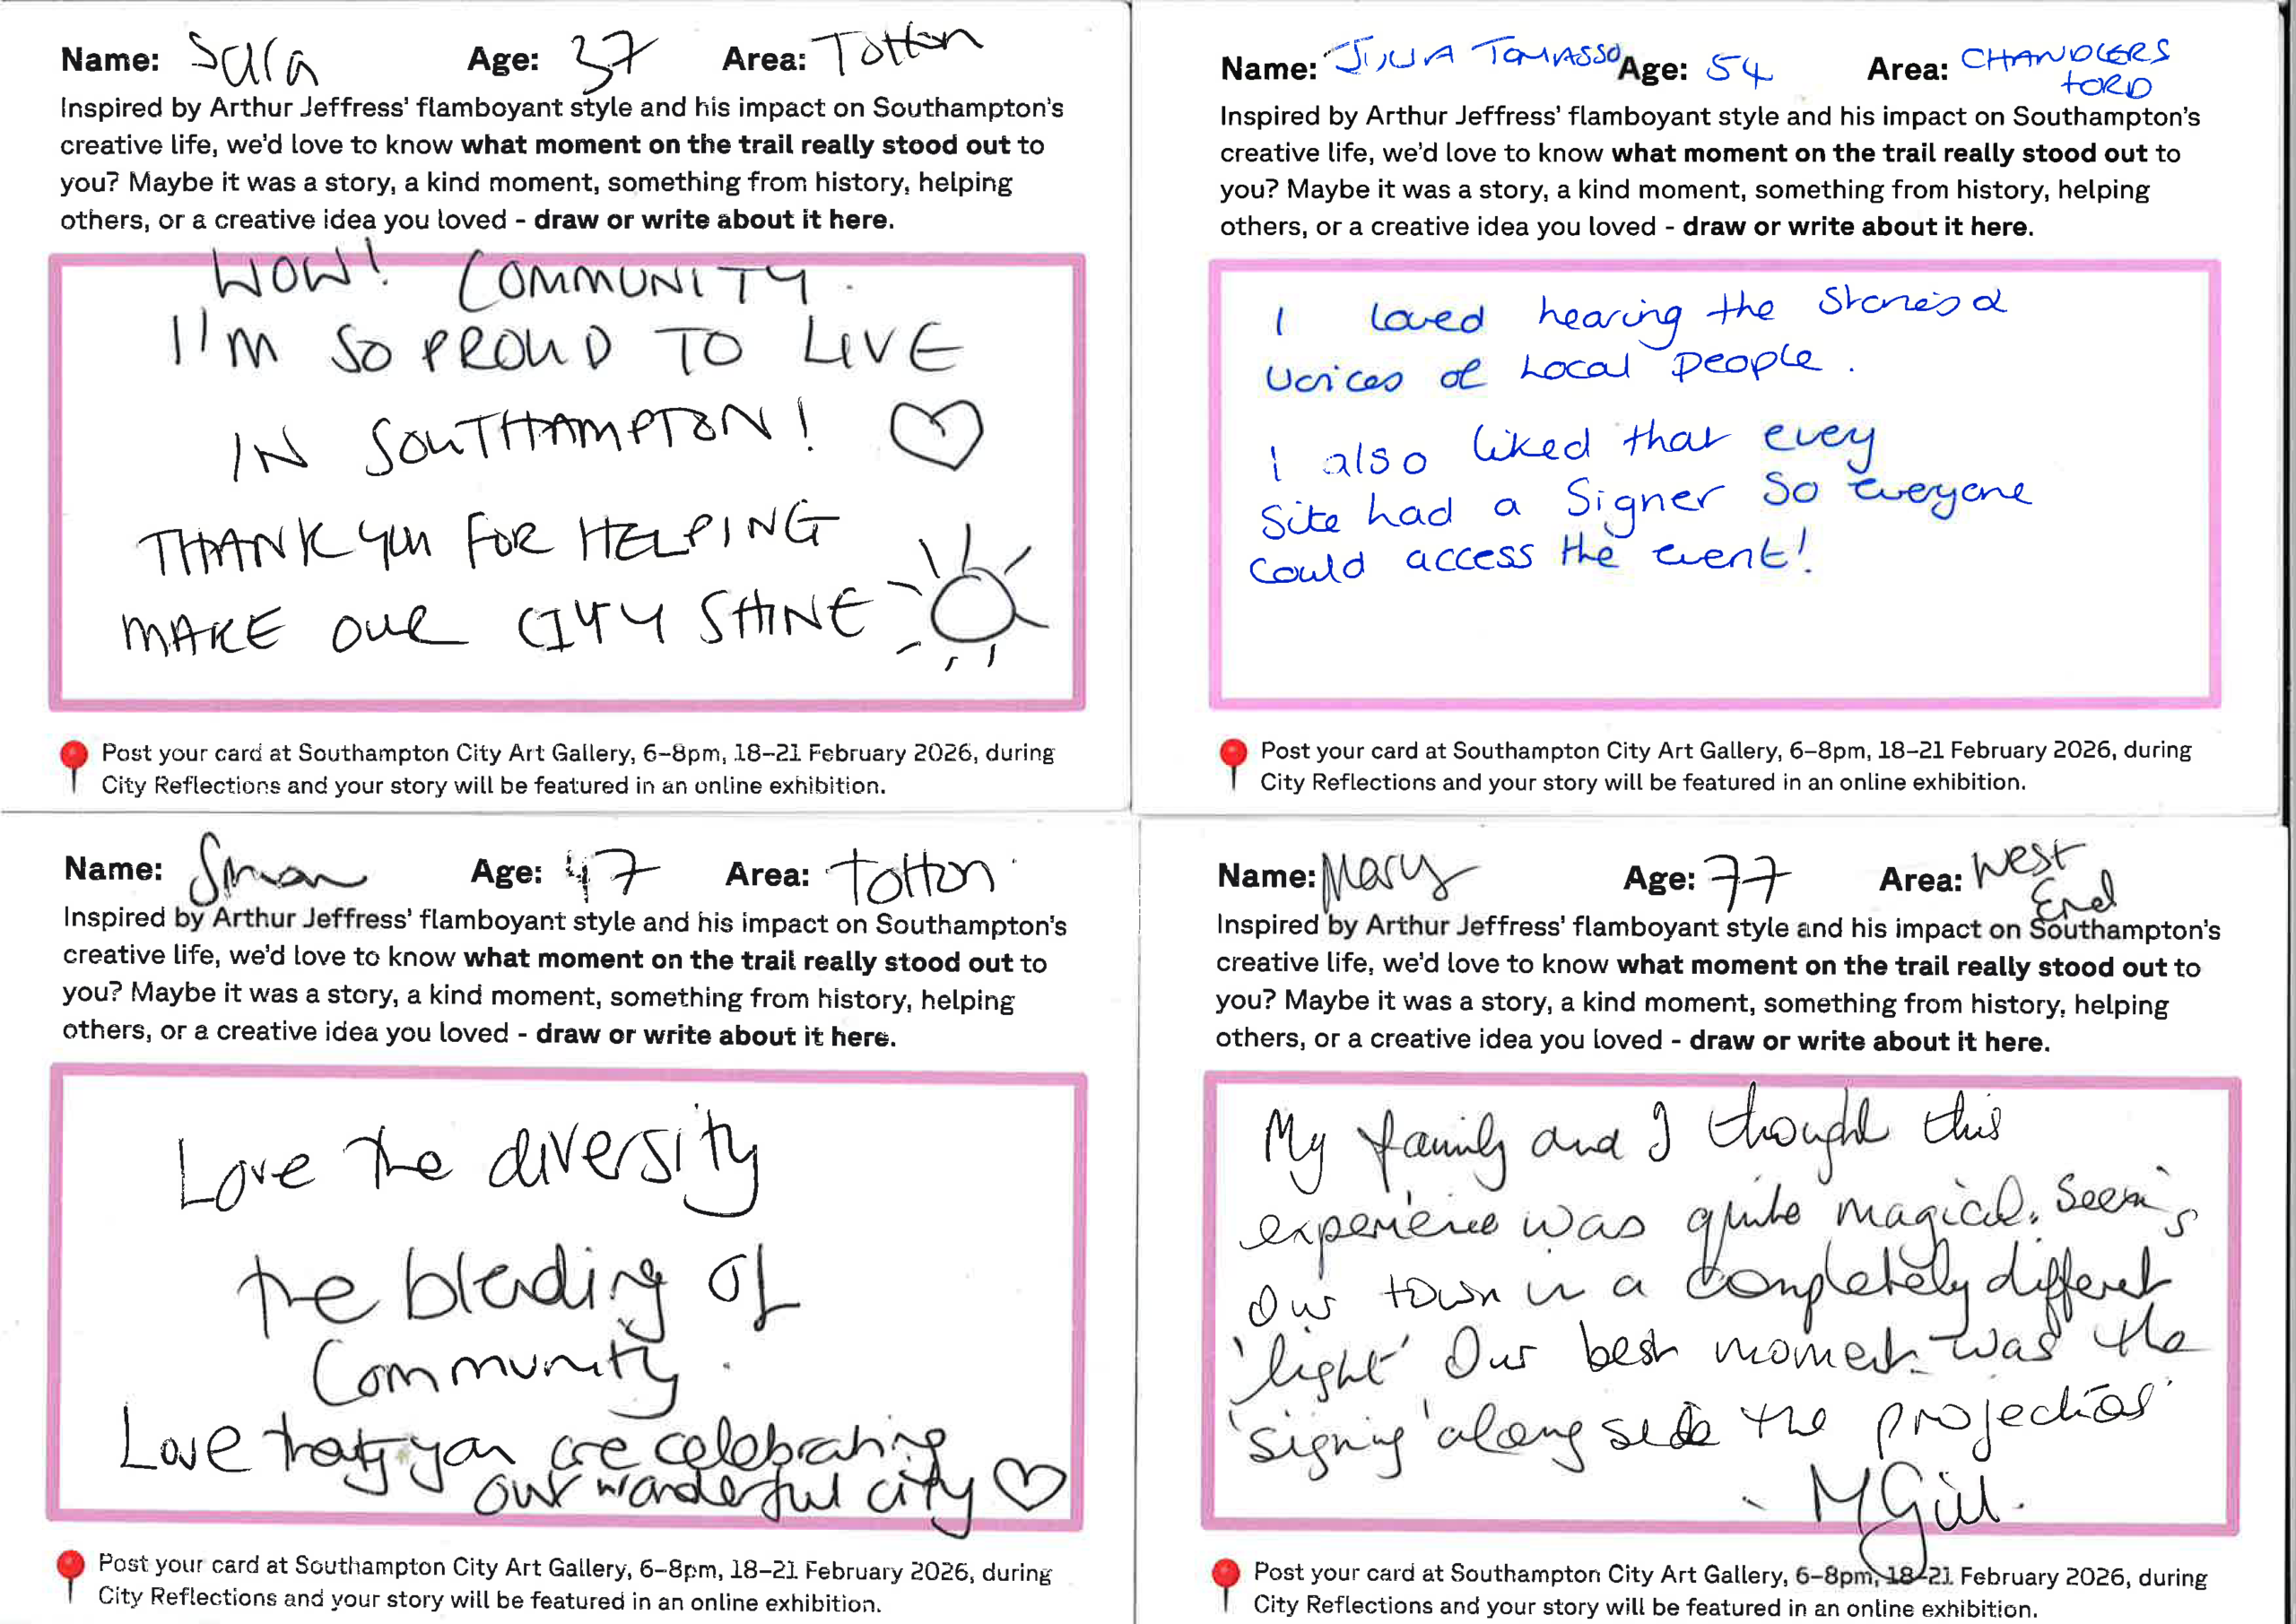 Name: Sara Age: 37 Area: Totton
Inspired by Arthur Jeffress' flamboyant style and his impact on Southampton's
creative life, we'd love to know what moment on the trail really stood out to
you? Maybe it was a story, a kind moment, something from history, helping
others, or a creative idea you loved - draw or write about it here.
WOW! COMMUNITY.
I'M SO PROUD TO LIVE
IN SOUTHAMPTON!
THANK YOU FOR HELPING
MAKE OUR CITY SHINE
Post your card at Southampton City Art Gallery, 6–8pm, 18–21 February 2026, during
City Reflections and your story will be featured in an online exhibition.
Name: JULIA TOMASSO Age: 54 Area: CHANDLERS
FORD
Inspired by Arthur Jeffress' flamboyant style and his impact on Southampton's
creative life, we'd love to know what moment on the trail really stood out to
you? Maybe it was a story, a kind moment, something from history, helping
others, or a creative idea you loved - draw or write about it here.
I loved hearing the stories &
voices of local people.
I also liked that every
site had a signer so everyone
could access the event!
Post your card at Southampton City Art Gallery, 6–8pm, 18–21 February 2026, during
City Reflections and your story will be featured in an online exhibition.
Name: Age: 47 Area: Totton
Inspired by Arthur Jeffress' flamboyant style and his impact on Southampton's
creative life, we'd love to know what moment on the trail really stood out to
you? Maybe it was a story, a kind moment, something from history, helping
others, or a creative idea you loved - draw or write about it here.
Love the diversity
the blending of
Community.
Love that you are celebrating
our wonderful city
Post your card at Southampton City Art Gallery, 6–8pm, 18–21 February 2026, during
City Reflections and your story will be featured in an online exhibition.
Name: Mary Age: 77 Area: West
End
Inspired by Arthur Jeffress' flamboyant style and his impact on Southampton's
creative life, we'd love to know what moment on the trail really stood out to
you? Maybe it was a story, a kind moment, something from history, helping
others, or a creative idea you loved - draw or write about it here.
My family and I thought this
experience was quite magical. Seeing
Our town in a completely different
'light' Our best moment was the
'signing' along side the projections
- M Gill.
Post your card at Southampton City Art Gallery, 6–8pm, 18–21 February 2026, during
City Reflections and your story will be featured in an online exhibition.